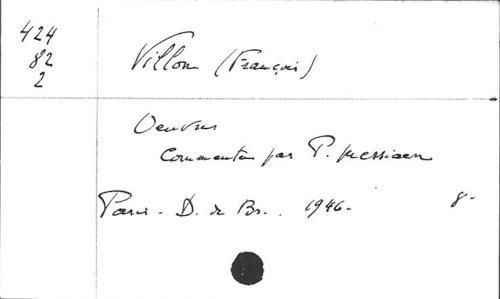 424
82
2
Villon (François)
Oeuvres
Commentées par P. Messiaen
Paris - D. de Br.. 1946. 8-